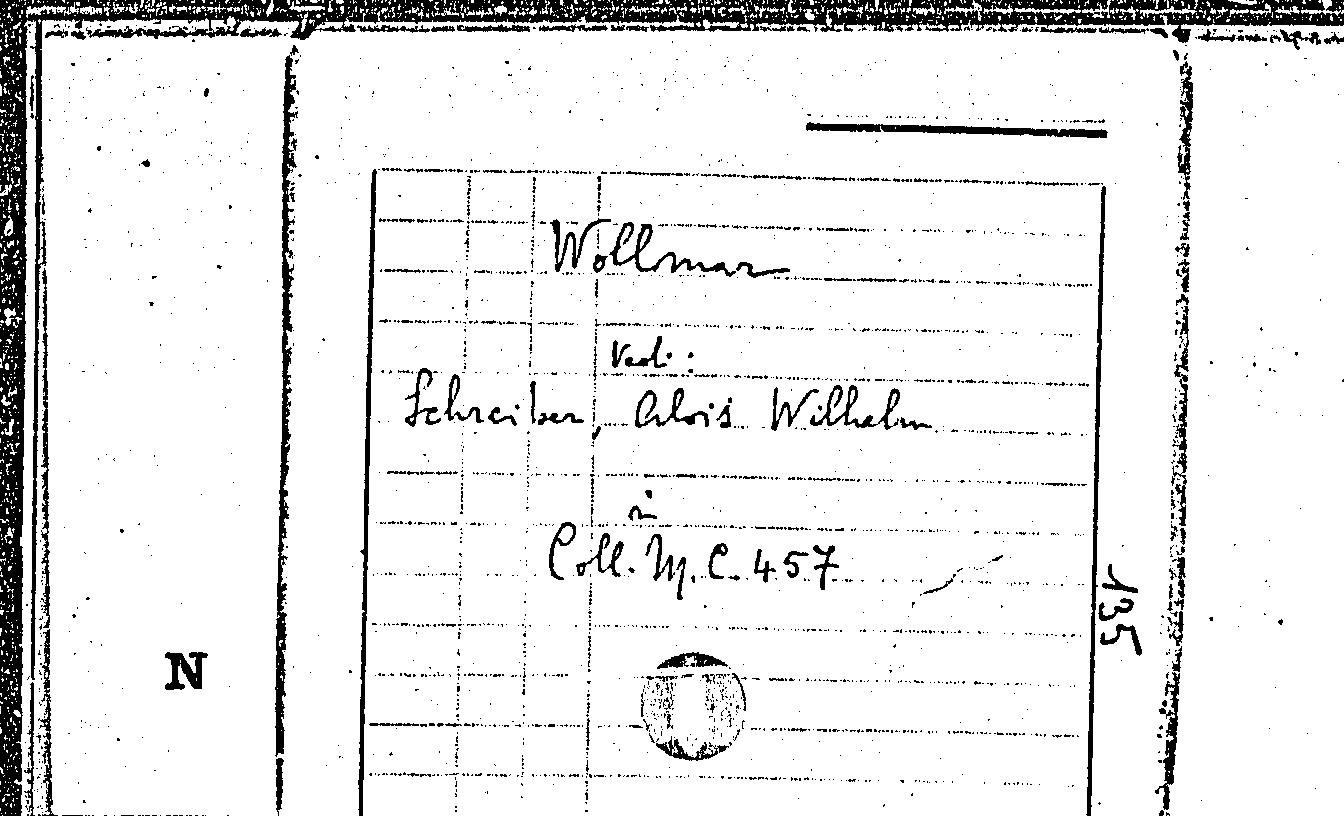 Wollmar
Verf.:
Schreiber, Alois Wilhelm
in
Coll. M. C. 457
135
N